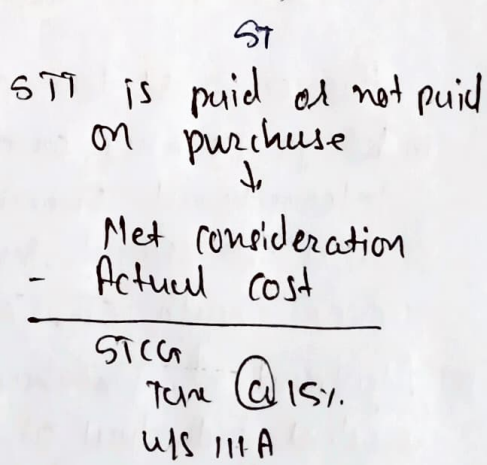 ST
STT is paid or not paid
on purchase
↓
Net consideration
- Actual cost
STCG
Tax @ 15%.
u/s 111A